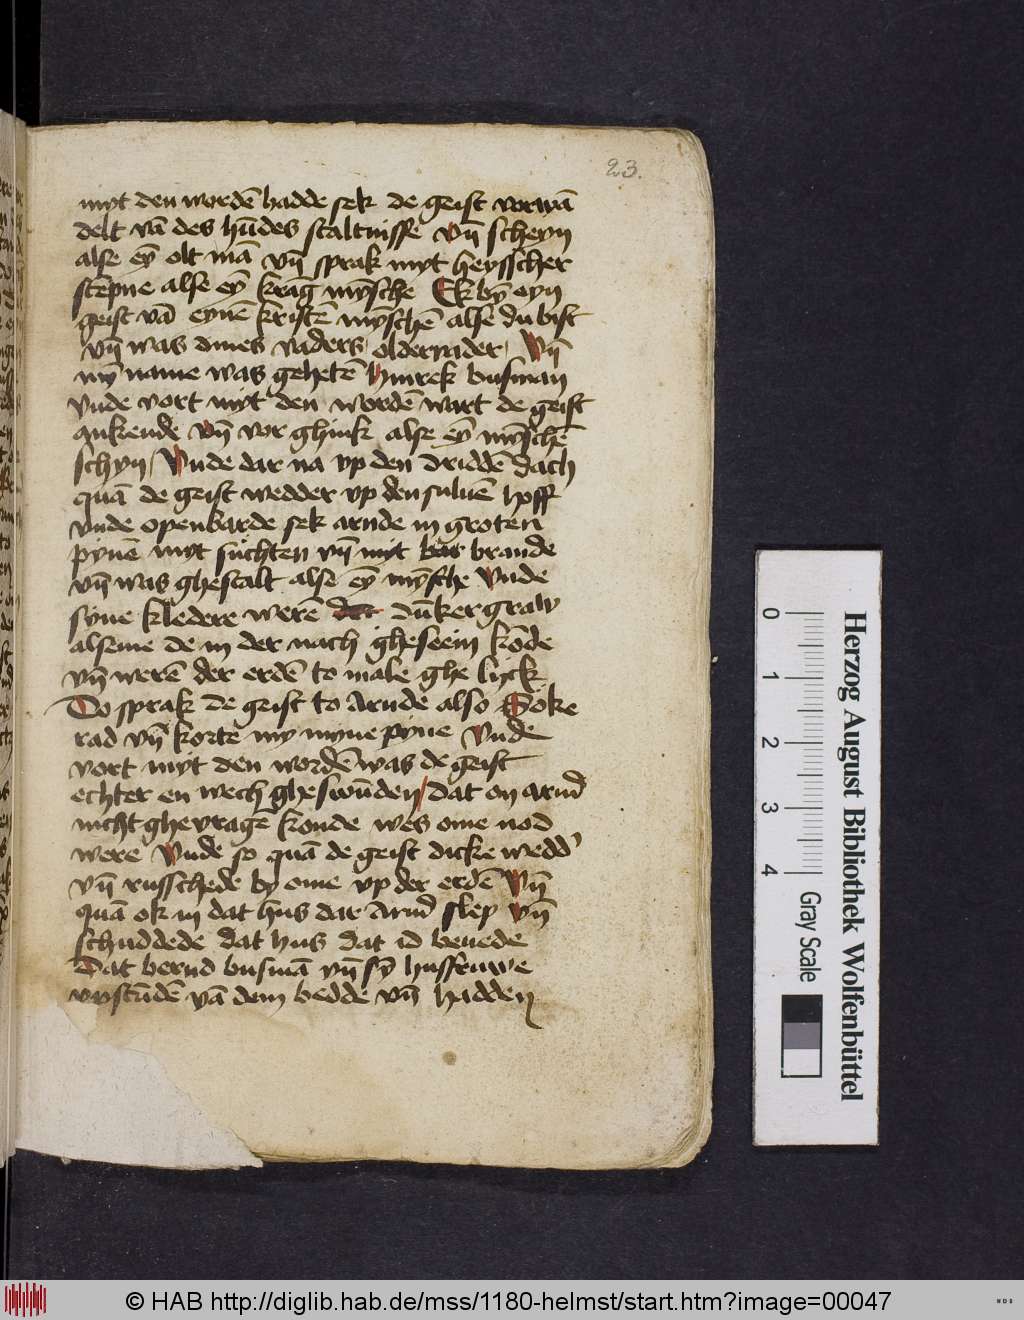 23.
myt den wordē hadde sek de geist vorwā
delt vā des hūdes staltnisse vn̄ scheyn
alse eȳ olt mā vn̄ sprak myt heysscher
stēpne alse eȳ krāg mȳsche Ek bȳ eyn
geist vā eynē kristē myschē alse du bist
vn̄ was dines vaders oldervader / Vn̄
mȳ name was gehetē hinrek busman
vnde vort myt den wordē wart de geist
qukende vn̄ vor ghink alse eȳ mȳschē
schyn / Vnde dar na vp den driddē dach
quā de geist wedder vp den suluē hoff
vnde openbarde sek arnde in groten
pynē myt suchten vn̄ myt bar brande
vn̄ was ghestalt alse eȳ mȳsche Vnde
syne kledere werē dūkergraw
alseme de in der nach gheseein kōde
vn̄ werē der erdē to male ghe lyck
Do sprak de geist to Arnde also Söke
rad vn̄ korte my myne pyne Vnde
vort myt den wordē was de geist
echter en wech gheswūden / dat on arnd
nicht ghevragē konde wes ome nod
were Vnde so quā de geist dicke wedd'
vn̄ russchede by ome vp der erdē Vn̄
quā ok in dat hus dar Arnd slep vn̄
schuddede dat hus dat id beuede
Dat bernd busmā vn̄ sȳ husfruwe
vpstūdē vā dem bedde vn̄ hadden
Herzog August Bibliothek Wolfenbüttel
0 1 2 3 4 Gray Scale
© HAB http://diglib.hab.de/mss/1180-helmst/start.htm?image=00047